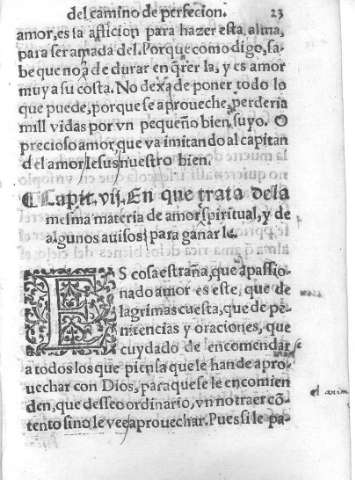 del camino de perfecion. 23
amor, es la aflicion para hazer esta alma,
para ser amada del. Porque como digo, sa-
be que no ą de durar en q̃rer la, y es amor
muy a su costa. No dexa de poner todo lo
que puede, porque se aproueche, perderia
mill vidas por vn pequeño bien suyo. O
precioso amor, que va imitando al capitan
del amor Iesus nuestro bien.
¶ Capit. vij. En que trata de la
mesma materia de amor spiritual, y de
algunos auisos para ganar le.
ES cosa estraña, que apassio-
nado amor es este, que de
lagrimas cuesta, que de pe-
nitencias y oraciones, que
cuydado de encomendar
a todos los que piensa que le han de apro-
uechar con Dios, para que se le encomien
den, que desseo ordinario, vn no traer cõ-
tento si no le vee aprouechar. Pues si le pa-
el anim